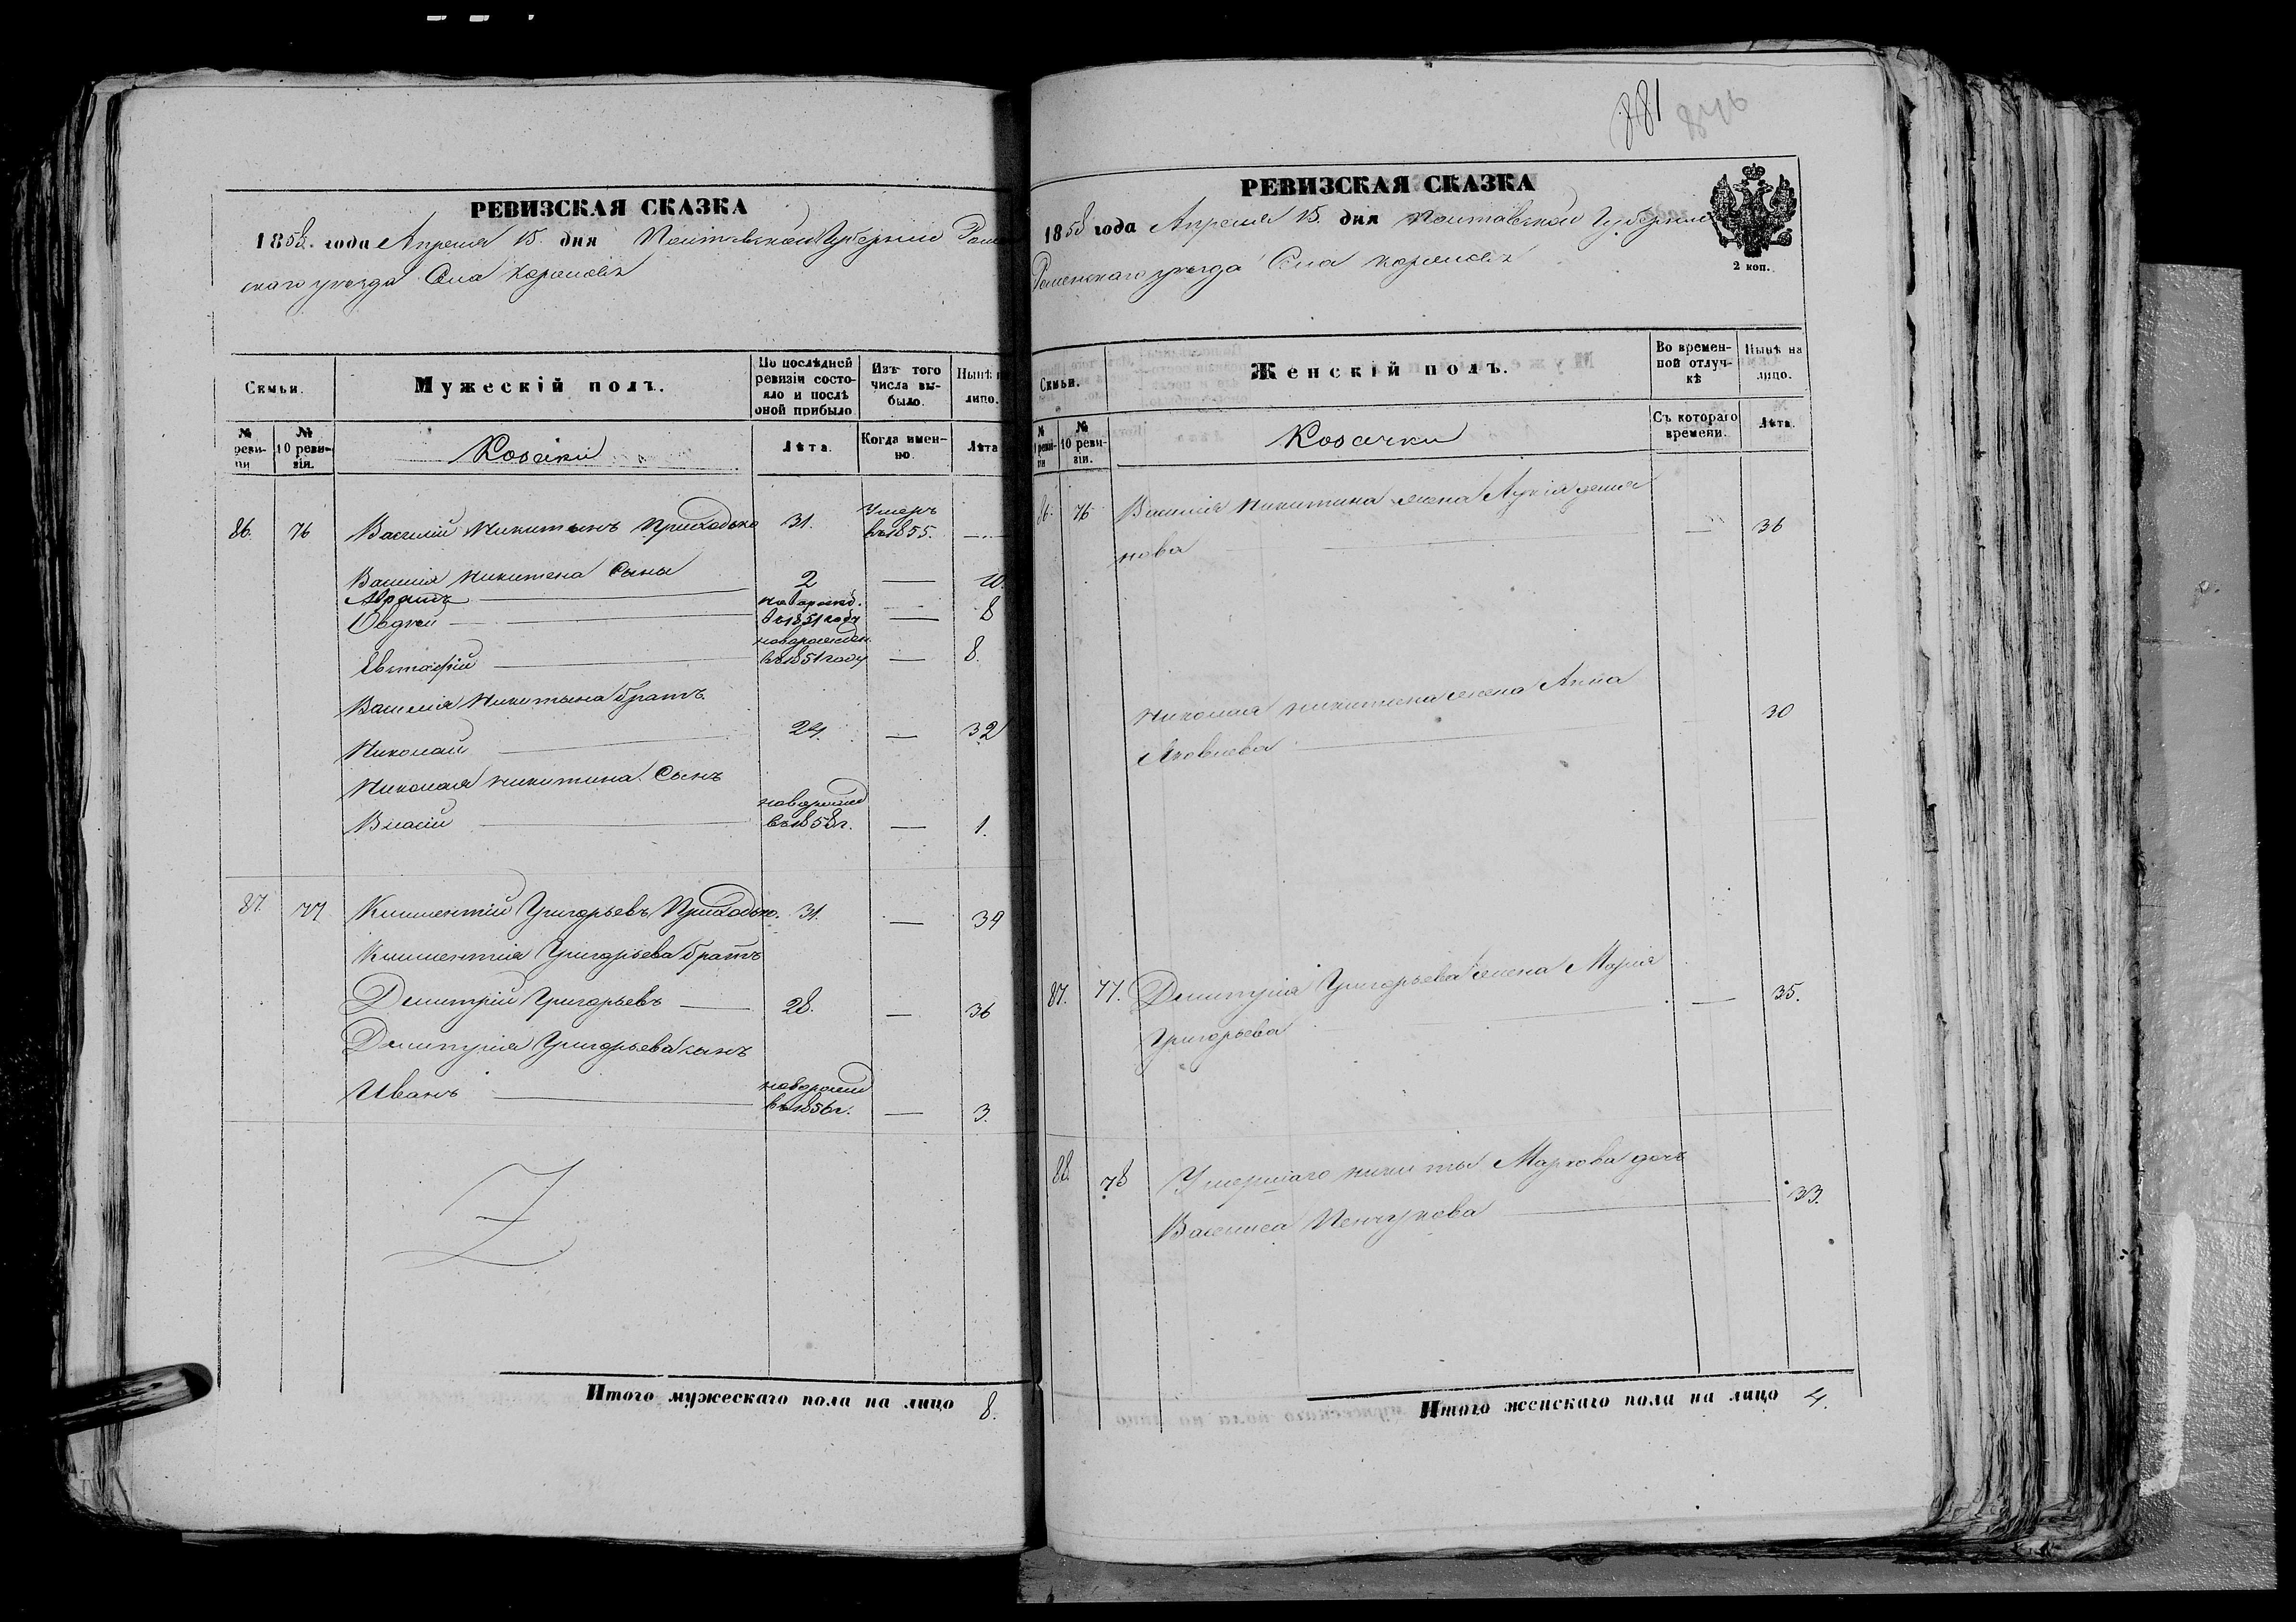 РЕВИЗСКАЯ СКАЗКА
1858. года Апреля 15. дня Полтавской Губернии Ромен
скаго уезда Села Коровинъ
Семьи.
Мужескій полъ.
По послѣдней ревизіи состояло и послѣ оной прибыло
Изъ того числа выбыло.
Нынѣ на лицо.
№ ревизіи
№ 10 ревизія.
Козаки
Лѣта.
Когда именно.
Лѣта
86. 76 Василий Никитинъ Приходько 31. Умеръ въ 1855. —
Василия Никитина Сыны
Абрамъ 2 — 10.
Овдѣй новорожд. въ 1851 году — 8
Евстафій новорожден. въ 1851 году — 8.
Василия Никитина братъ
Николай 24. — 32
Николая Никитина Сынъ
Власій новорожд въ 1858 г. — 1.
87. 77. Климентій Григорьевъ Приходько. 31. — 39
Климентія Григорьева братъ
Димитрій Григорьевъ 28. — 36
Димитрія Григорьева сынъ
Иванъ новорожд въ 1856 г. — 3.
Итого мужескаго пола на лицо 8.
881
846
РЕВИЗСКАЯ СКАЗКА
1858 года Апреля 15. дня Полтавской Губернии
Роменскаго уезда Села Коровинъ
2 коп.
Семьи.
Женскій полъ.
Во временной отлучкѣ
Нынѣ на лицо.
№ ревизіи
№ 10 ревизіи.
Козачки
Съ котораго времени.
Лѣта.
86. 76 Василія Никитина жена Лукія Демья
нова — 36
Николая Никитина жена Анна 30
Яковлева
87. 77. Димитрія Григорьева жена Марія — 35.
Григорьева
88. 78 Умершаго Никиты Маркова дочь
Василиса Пенчукова 33.
Итого женскаго пола на лицо 4.